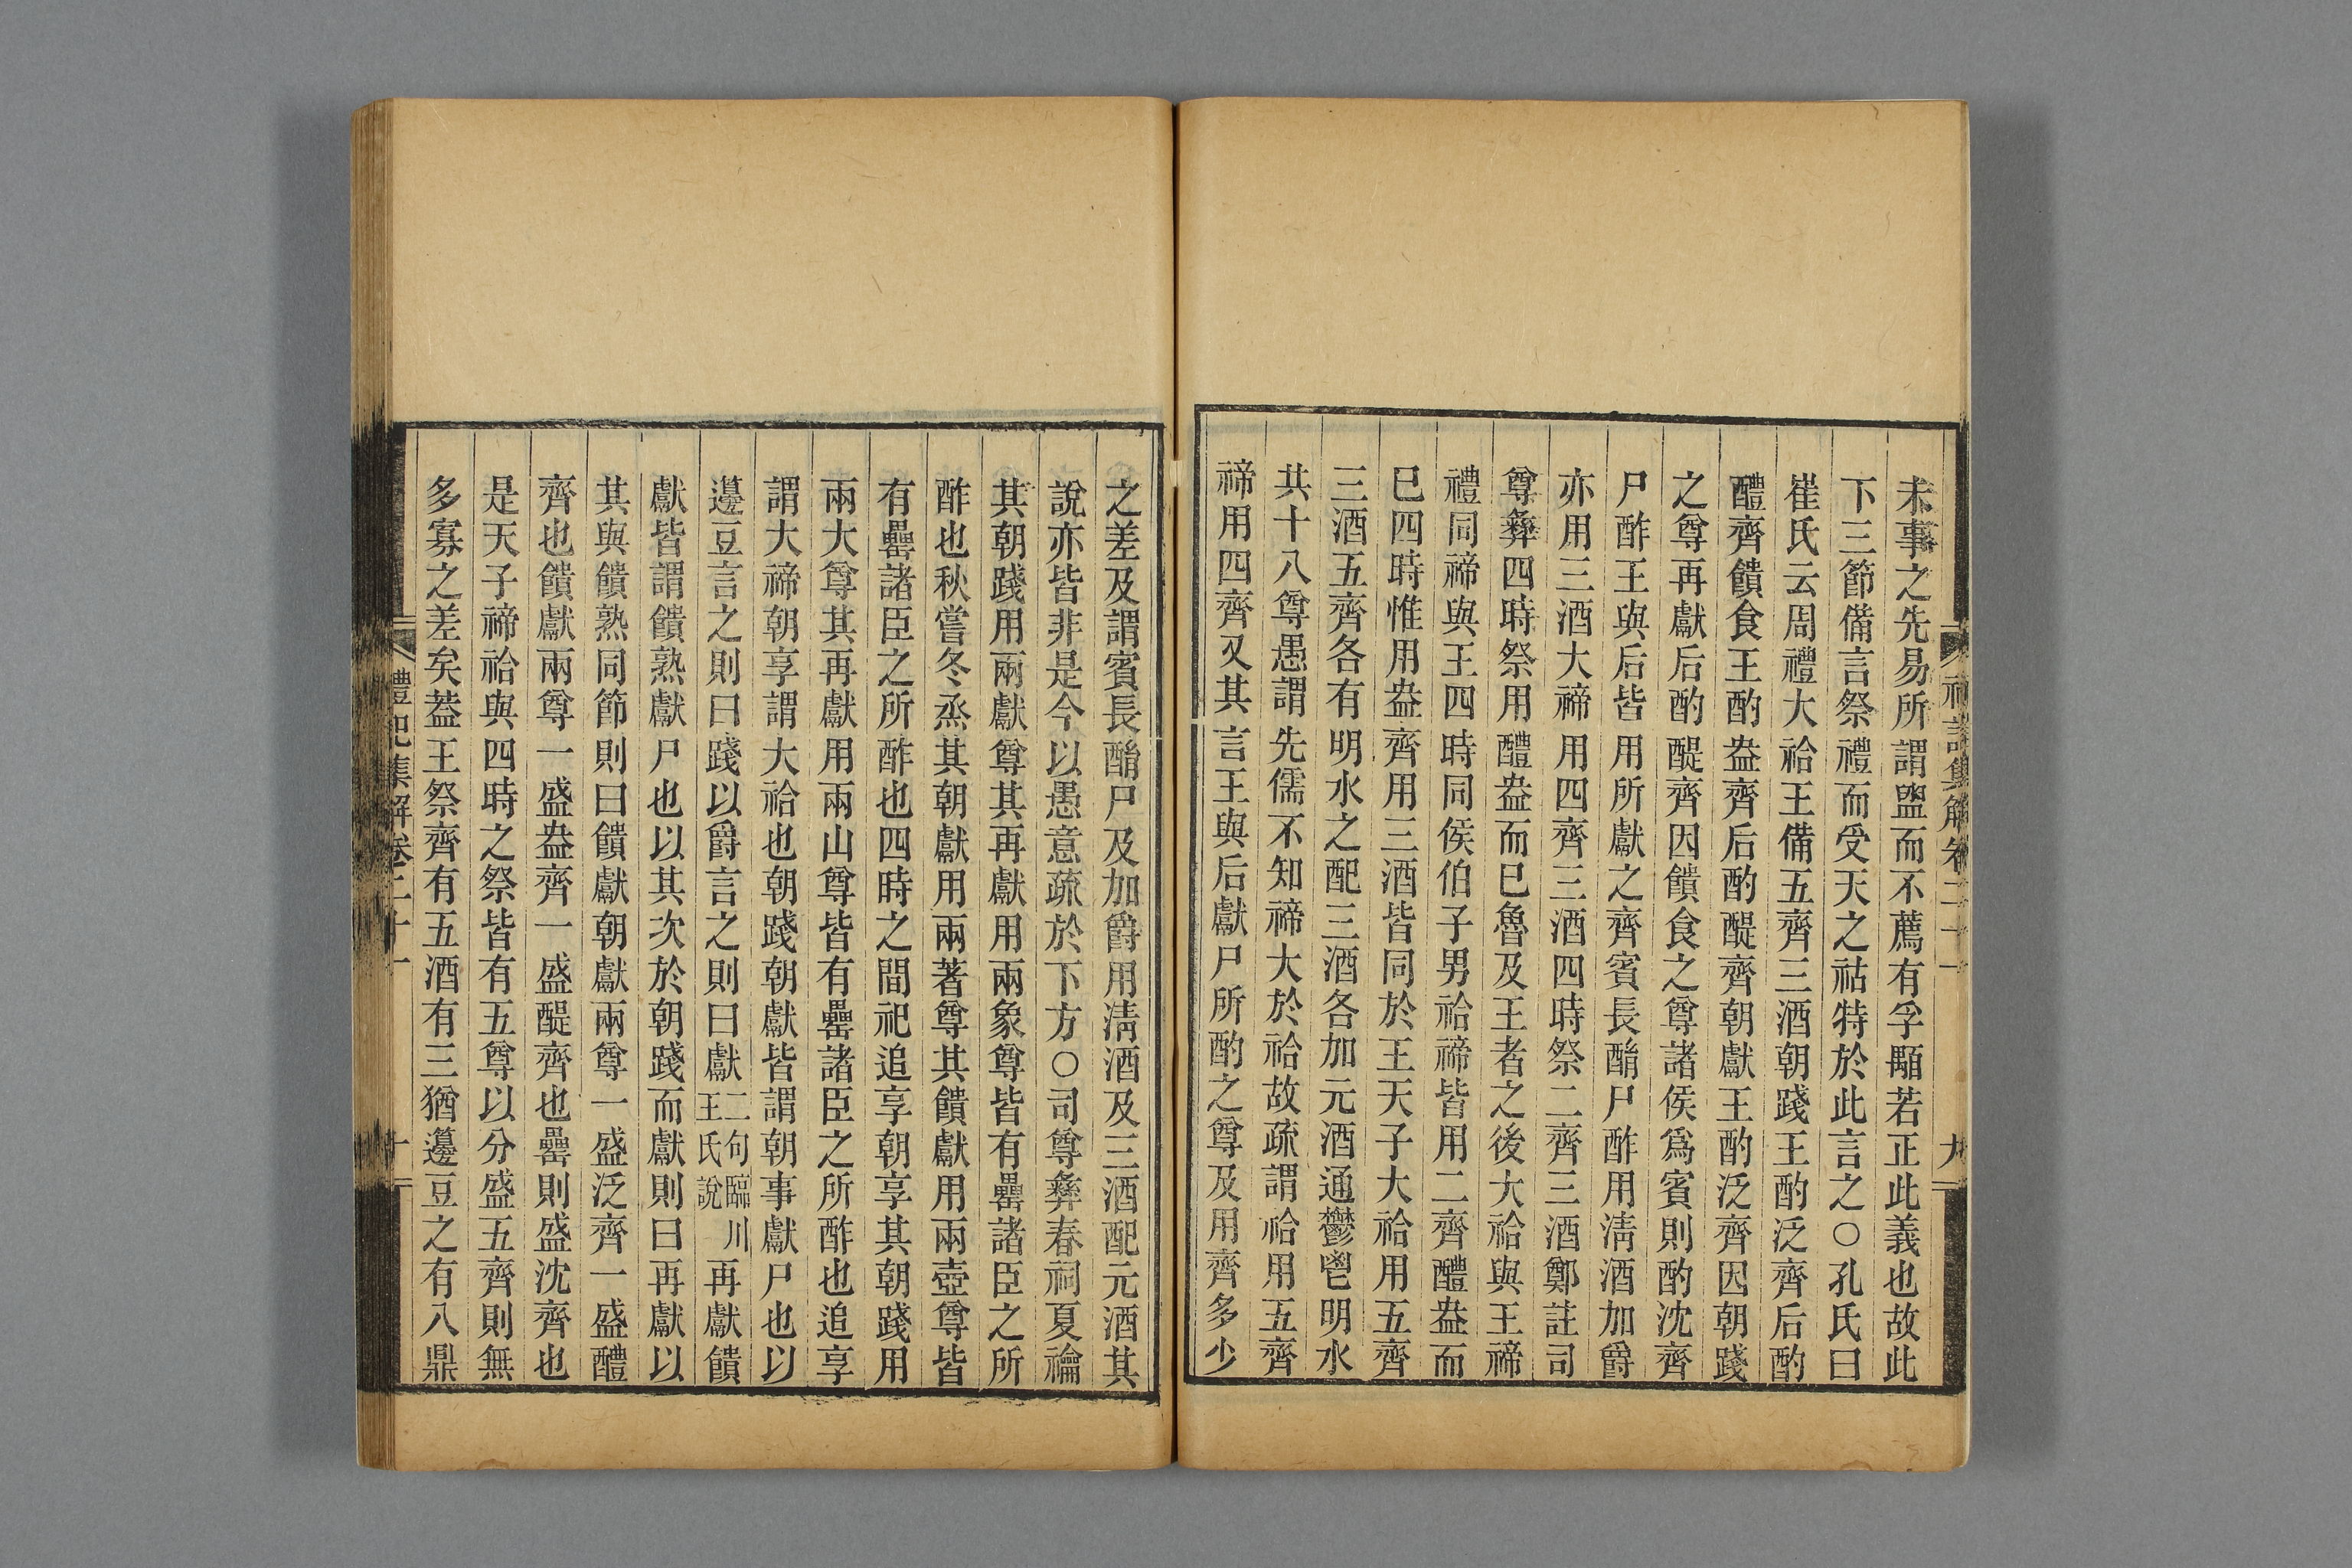 禮記集解卷二十一
九
未事之先易所謂盥而不薦有孚顒若正此義也故此
下三節備言祭禮而受天之祜特於此言之○孔氏曰
崔氏云周禮大祫王備五齊三酒朝踐王酌泛齊后酌
醴齊饋食王酌盎齊后酌醍齊朝獻王酌泛齊因朝踐
之尊再獻后酌醍齊因饋食之尊諸侯爲賓則酌沈齊
尸酢王與后皆用所獻之齊賓長酳尸酢用淸酒加爵
亦用三酒大禘用四齊三酒四時祭二齊三酒鄭註司
尊彝四時祭用醴盎而已魯及王者之後大祫與王禘
禮同禘與王四時同侯伯子男祫禘皆用二齊醴盎而
已四時惟用盎齊用三酒皆同於王天子大祫用五齊
三酒五齊各有明水之配三酒各加元酒通鬱鬯明水
共十八尊愚謂先儒不知禘大於祫故疏謂祫用五齊
禘用四齊又其言王與后獻尸所酌之尊及用齊多少
之差及謂賓長酳尸及加爵用淸酒及三酒配元酒其
說亦皆非是今以愚意疏於下方○司尊彝春祠夏禴
其朝踐用兩獻尊其再獻用兩象尊皆有罍諸臣之所
酢也秋嘗冬烝其朝獻用兩著尊其饋獻用兩壺尊皆
有罍諸臣之所酢也四時之間祀追享朝享其朝踐用
兩大尊其再獻用兩山尊皆有罍諸臣之所酢也追享
謂大禘朝享謂大祫也朝踐朝獻皆謂朝事獻尸也以
籩豆言之則曰踐以爵言之則曰獻二句臨川王氏說再獻饋
獻皆謂饋熟獻尸也以其次於朝踐而獻則曰再獻以
其與饋熟同節則曰饋獻朝獻兩尊一盛泛齊一盛醴
齊也饋獻兩尊一盛盎齊一盛醍齊也罍則盛沈齊也
是天子禘祫與四時之祭皆有五尊以分盛五齊則無
多寡之差矣葢王祭齊有五酒有三猶籩豆之有八鼎
禮記集解卷二十一
十